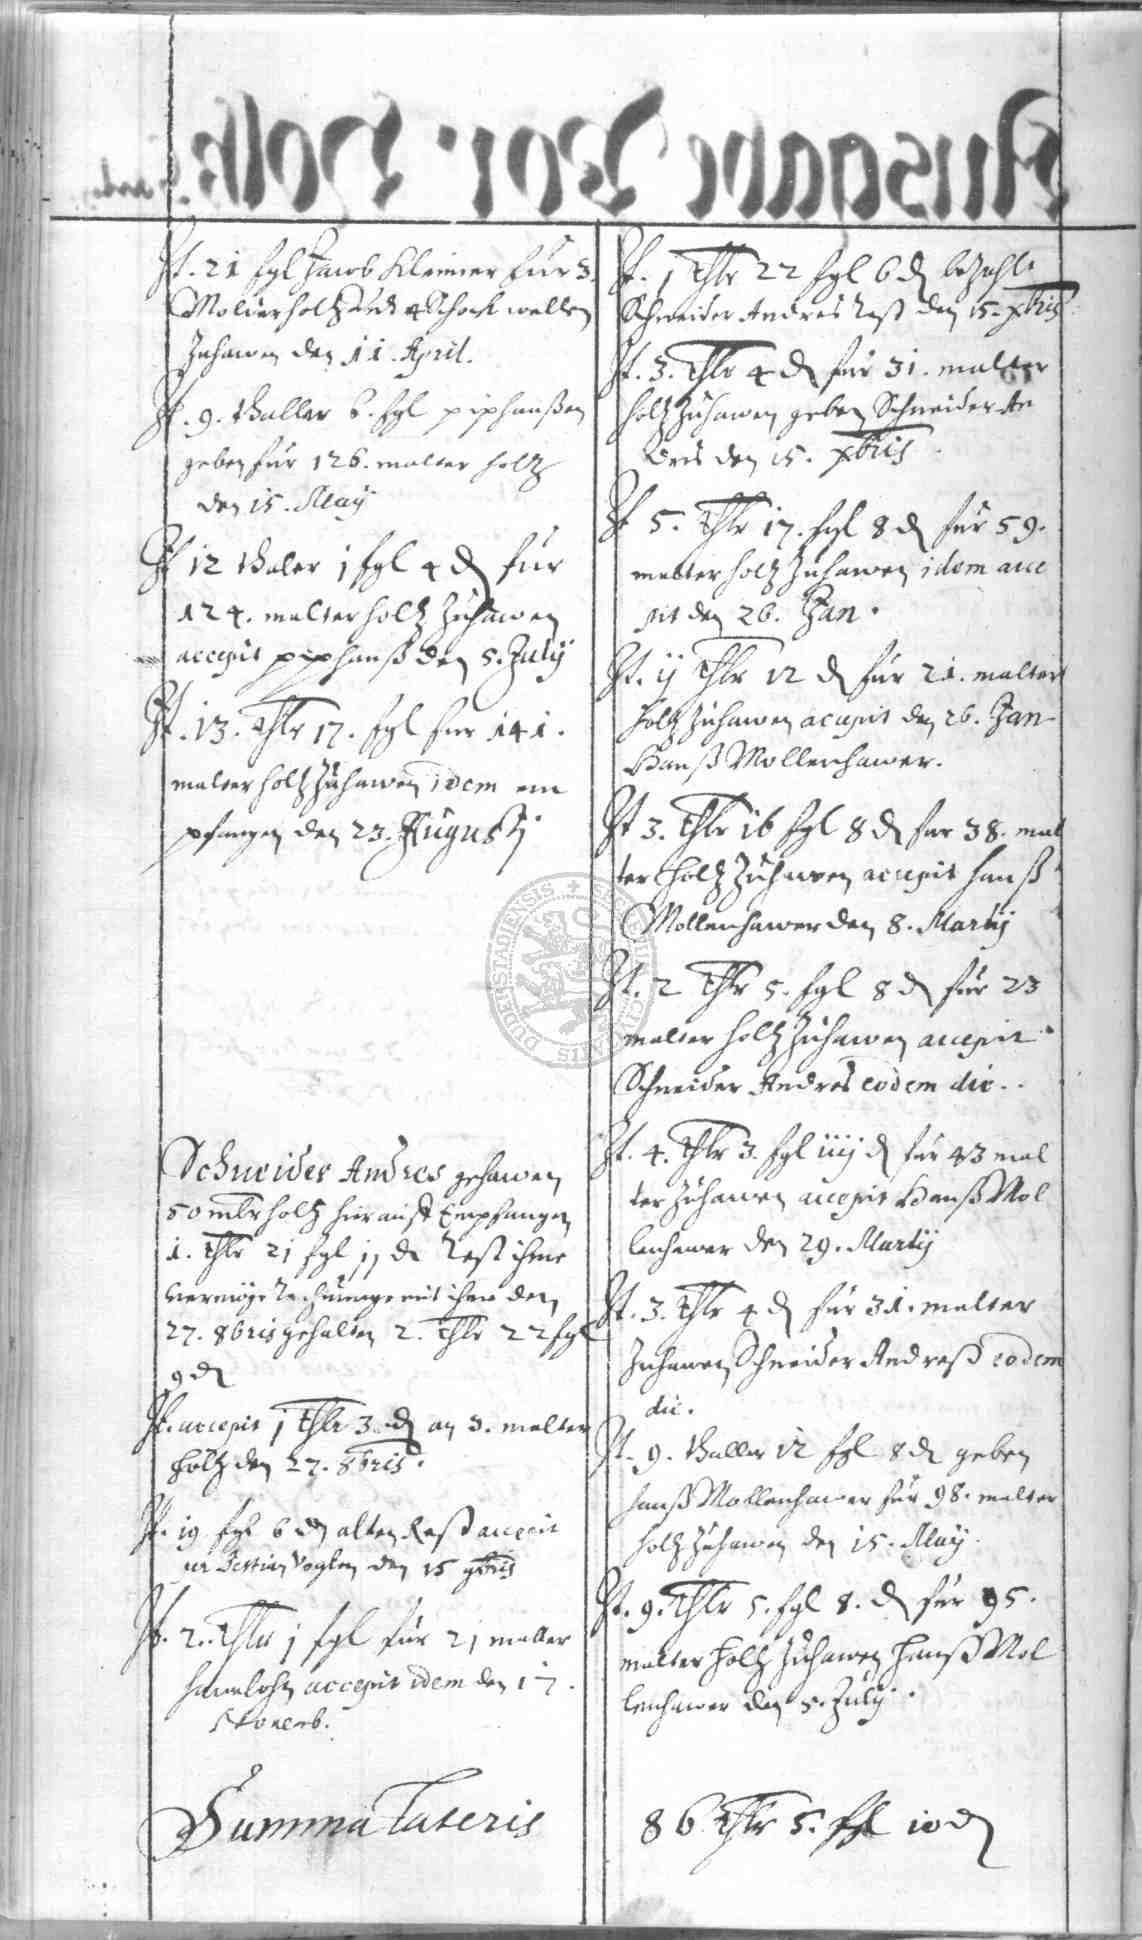 It. 21 ßgl Jacob Kleiner fur 3.
Molderholtz Und 4 Schock wellen
Zuhawen den 11. April.
It. 9. thaller 6. ßgl piphanßen
geben für 126. malter holtz
den 15. Maij
It 12 thaler j ßgl 4 d für
124. malter holtz Zuhawen
accepit piphanß den 5. Julij
It. 13. thlr 17. ßgl fur 141.
malter holtz Zuhawen idem em
pfangen den 23. Augusti
Schneider Andres gehawen
50 mltr holtz hierauff Empfangen
1. thlr 21 ßgl jj d Rest ihme
vermöge Rechnunge mit ihm den
27. 8bris gehalten 2. thlr 22 ßgl
9 d
It. accepit j thlr 3 d an 3. malter
holtz den 27. 8bris.
It. 19 ßgl 6 d alten Rest accepit
Bestian Voglen den 15 9bris
It. 2. thlr j ßgl für 21 malter
hawlohn accepit idem den 17.
Novemb.
Summa Lateris
It. 1 thlr 22 ßgl 6 d bezahlt
Schneider Andres Rest den 15. xbris
It. 3. thlr 4 d für 31. malter
holtz Zuhawen geben Schneider An
dres den 15. xbris
It 5. thlr 17. ßgl 8 d für 59.
malter holtz Zuhawen idem acce
pit den 26. Jan.
It. ij thlr 12 d für 21. malter
holtz Zuhawen accepit den 26. Jan
Hanß Mollenhawer.
It 3. thlr 16 ßgl 8 d fur 38. mal
ter holtz Zuhawen accepit hanß
Mollenhawer den 8. Martij
It. 2 thlr 5. ßgl 8 d für 23
malter holtz Zuhawen accepit
Schneider Andres eodem die.
It. 4. thlr 3. ßgl iiij d für 43 mal
ter Zuhawen accepit Hanß Mol
lenhawer den 29. Martij
It. 3. thlr 4 d für 31. malter
Zuhawen Schneider Andreß eodem
die.
It. 9. thaller 12 ßgl 8 d geben
hanß Mollenhawer für 98. malter
holtz Zuhawen den 15. Maij.
It. 9. thlr 5. ßgl 8. d für 95.
malter holtz Zuhawen hanß Mol
lenhawer den 5. Julij.
86 thlr 5. ßgl 10 d